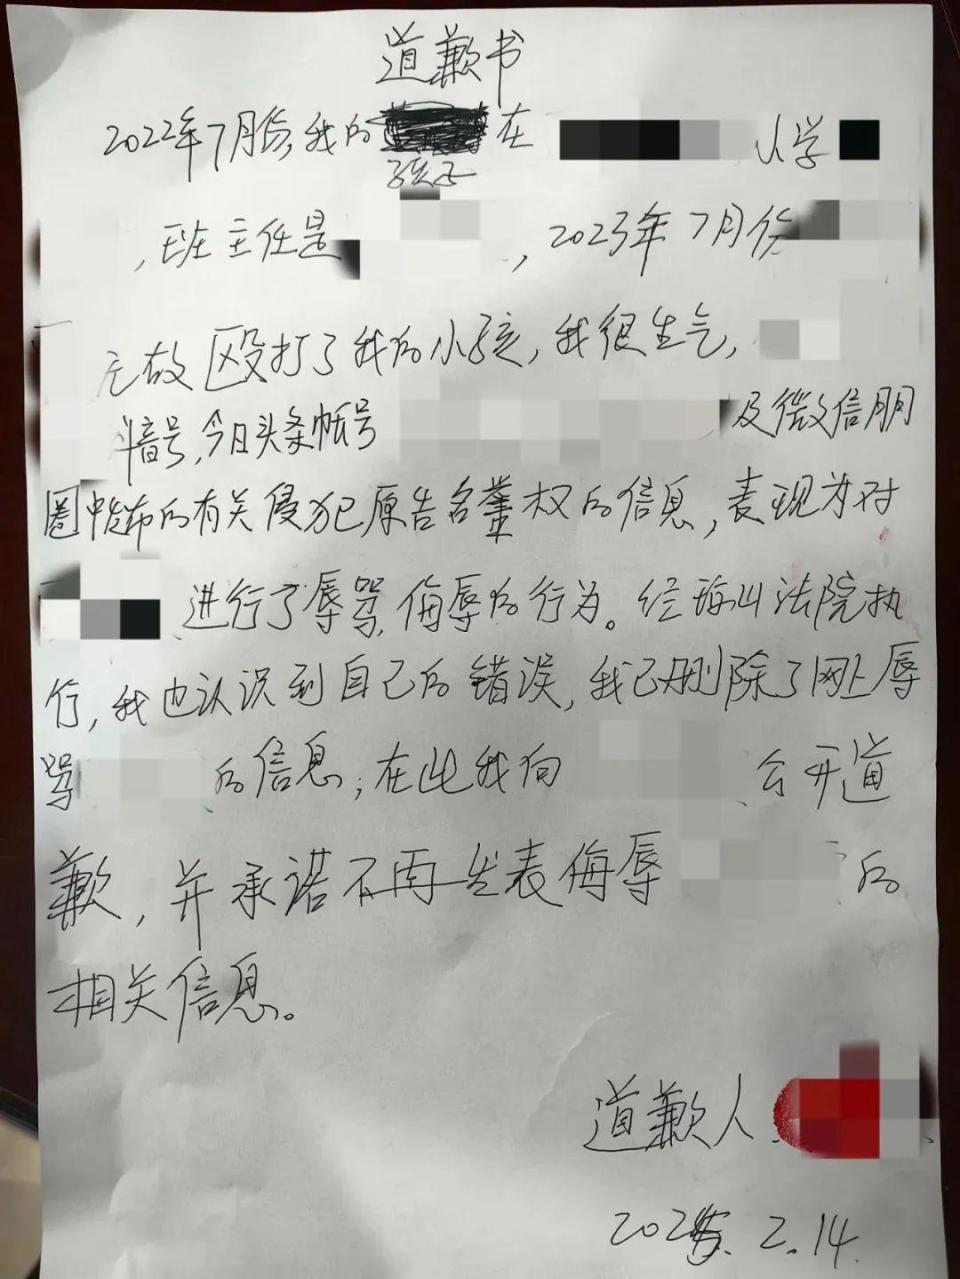 道歉书
2022年7月份,我的 在 小学
孩子
,班主任是 ,2023年7月份
无故殴打了我的小孩,我很生气,
音号,今日头条帐号 及微信朋
圈中发布的有关侵犯原告名誉权的信息,表现为对
进行了辱骂,侮辱的行为。经 法院执
行,我也认识到自己的错误,我已删除了网上辱
骂 的信息;在此我向 公开道
歉,并承诺不再发表侮辱 的
相关信息。
道歉人
2025.2.14